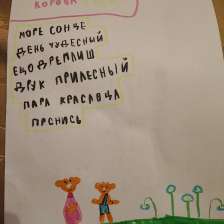 КОРОВА
МОРЕ СОНЦЕ
ДЕНЬ ЧУДЕСНЫЙ
ЕЩО ДРЕПЛИШ
ДРУК ПРИЛЕСНЫЙ
ПАРА КРАСАВЦА
ПРСНИСЬ